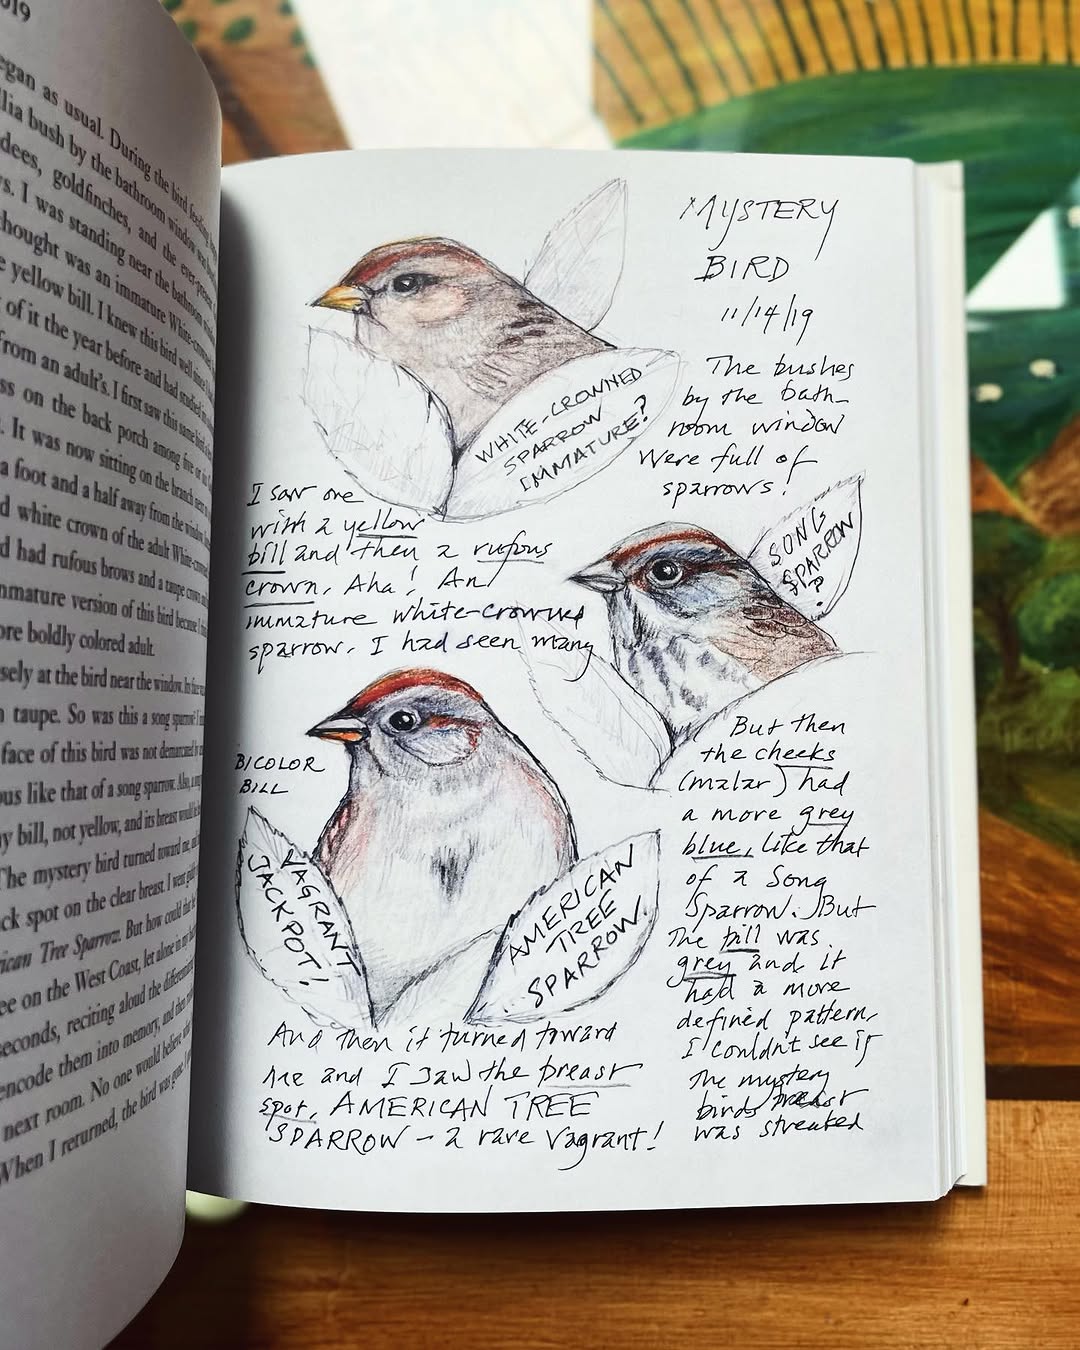 019
egan as usual. During the bird feeding
llia bush by the bathroom window was
dees, goldfinches, and the ever-present
s. I was standing near the bathroom window
thought was an immature White-crowned
e yellow bill. I knew this bird well since I
of it the year before and had studied
from an adult's. I first saw this same bird
ss on the back porch among five or six
. It was now sitting on the branch next
a foot and a half away from the window.
d white crown of the adult White-crowned
d had rufous brows and a taupe crown
mmature version of this bird because I
ore boldly colored adult.
sely at the bird near the window. Its face was
n taupe. So was this a song sparrow?
face of this bird was not demarcated
ous like that of a song sparrow. Also, a song
y bill, not yellow, and its breast would
The mystery bird turned toward me, and
ck spot on the clear breast. I went
rican Tree Sparrow. But how could that
ee on the West Coast, let alone in my
seconds, reciting aloud the differences
encode them into memory, and then
next room. No one would believe
When I returned, the bird was gone.
MYSTERY
BIRD
11/14/19
The bushes
by the bath-
room window
were full of
sparrows!
WHITE-CROWNED
SPARROW
IMMATURE?
I saw one
with a yellow
bill and then a rufous
crown. Aha! An
immature white-crowned
sparrow. I had seen many
SONG
SPARROW
?
But then
the cheeks
(malar) had
a more grey
blue, like that
of a Song
Sparrow. But
the bill was
grey and it
had a more
defined pattern,
I couldn't see if
the mystery
birds breast
was streaked
BICOLOR
BILL
VAGRANT
JACKPOT!
AMERICAN
TREE
SPARROW.
And then it turned toward
me and I saw the breast
spot, AMERICAN TREE
SPARROW – a rare vagrant!